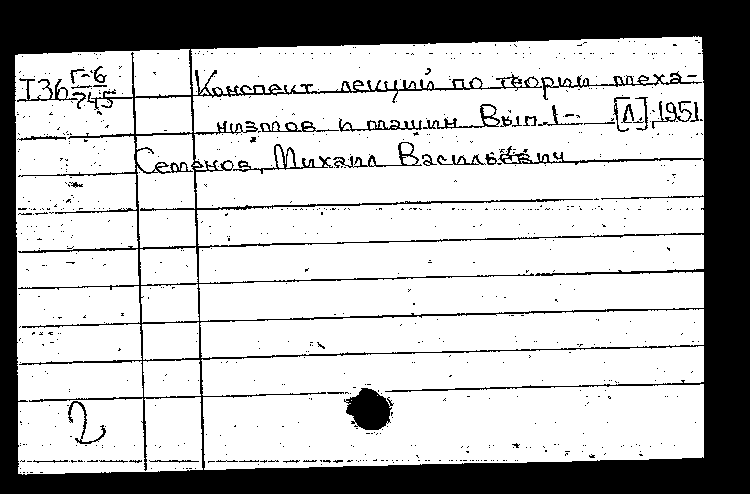 Т36 Г-6/745
Конспект лекций по теории меха-
низмов и машин Вып. 1- [Л.], 1951
Семенов, Михаил Васильевич.
2